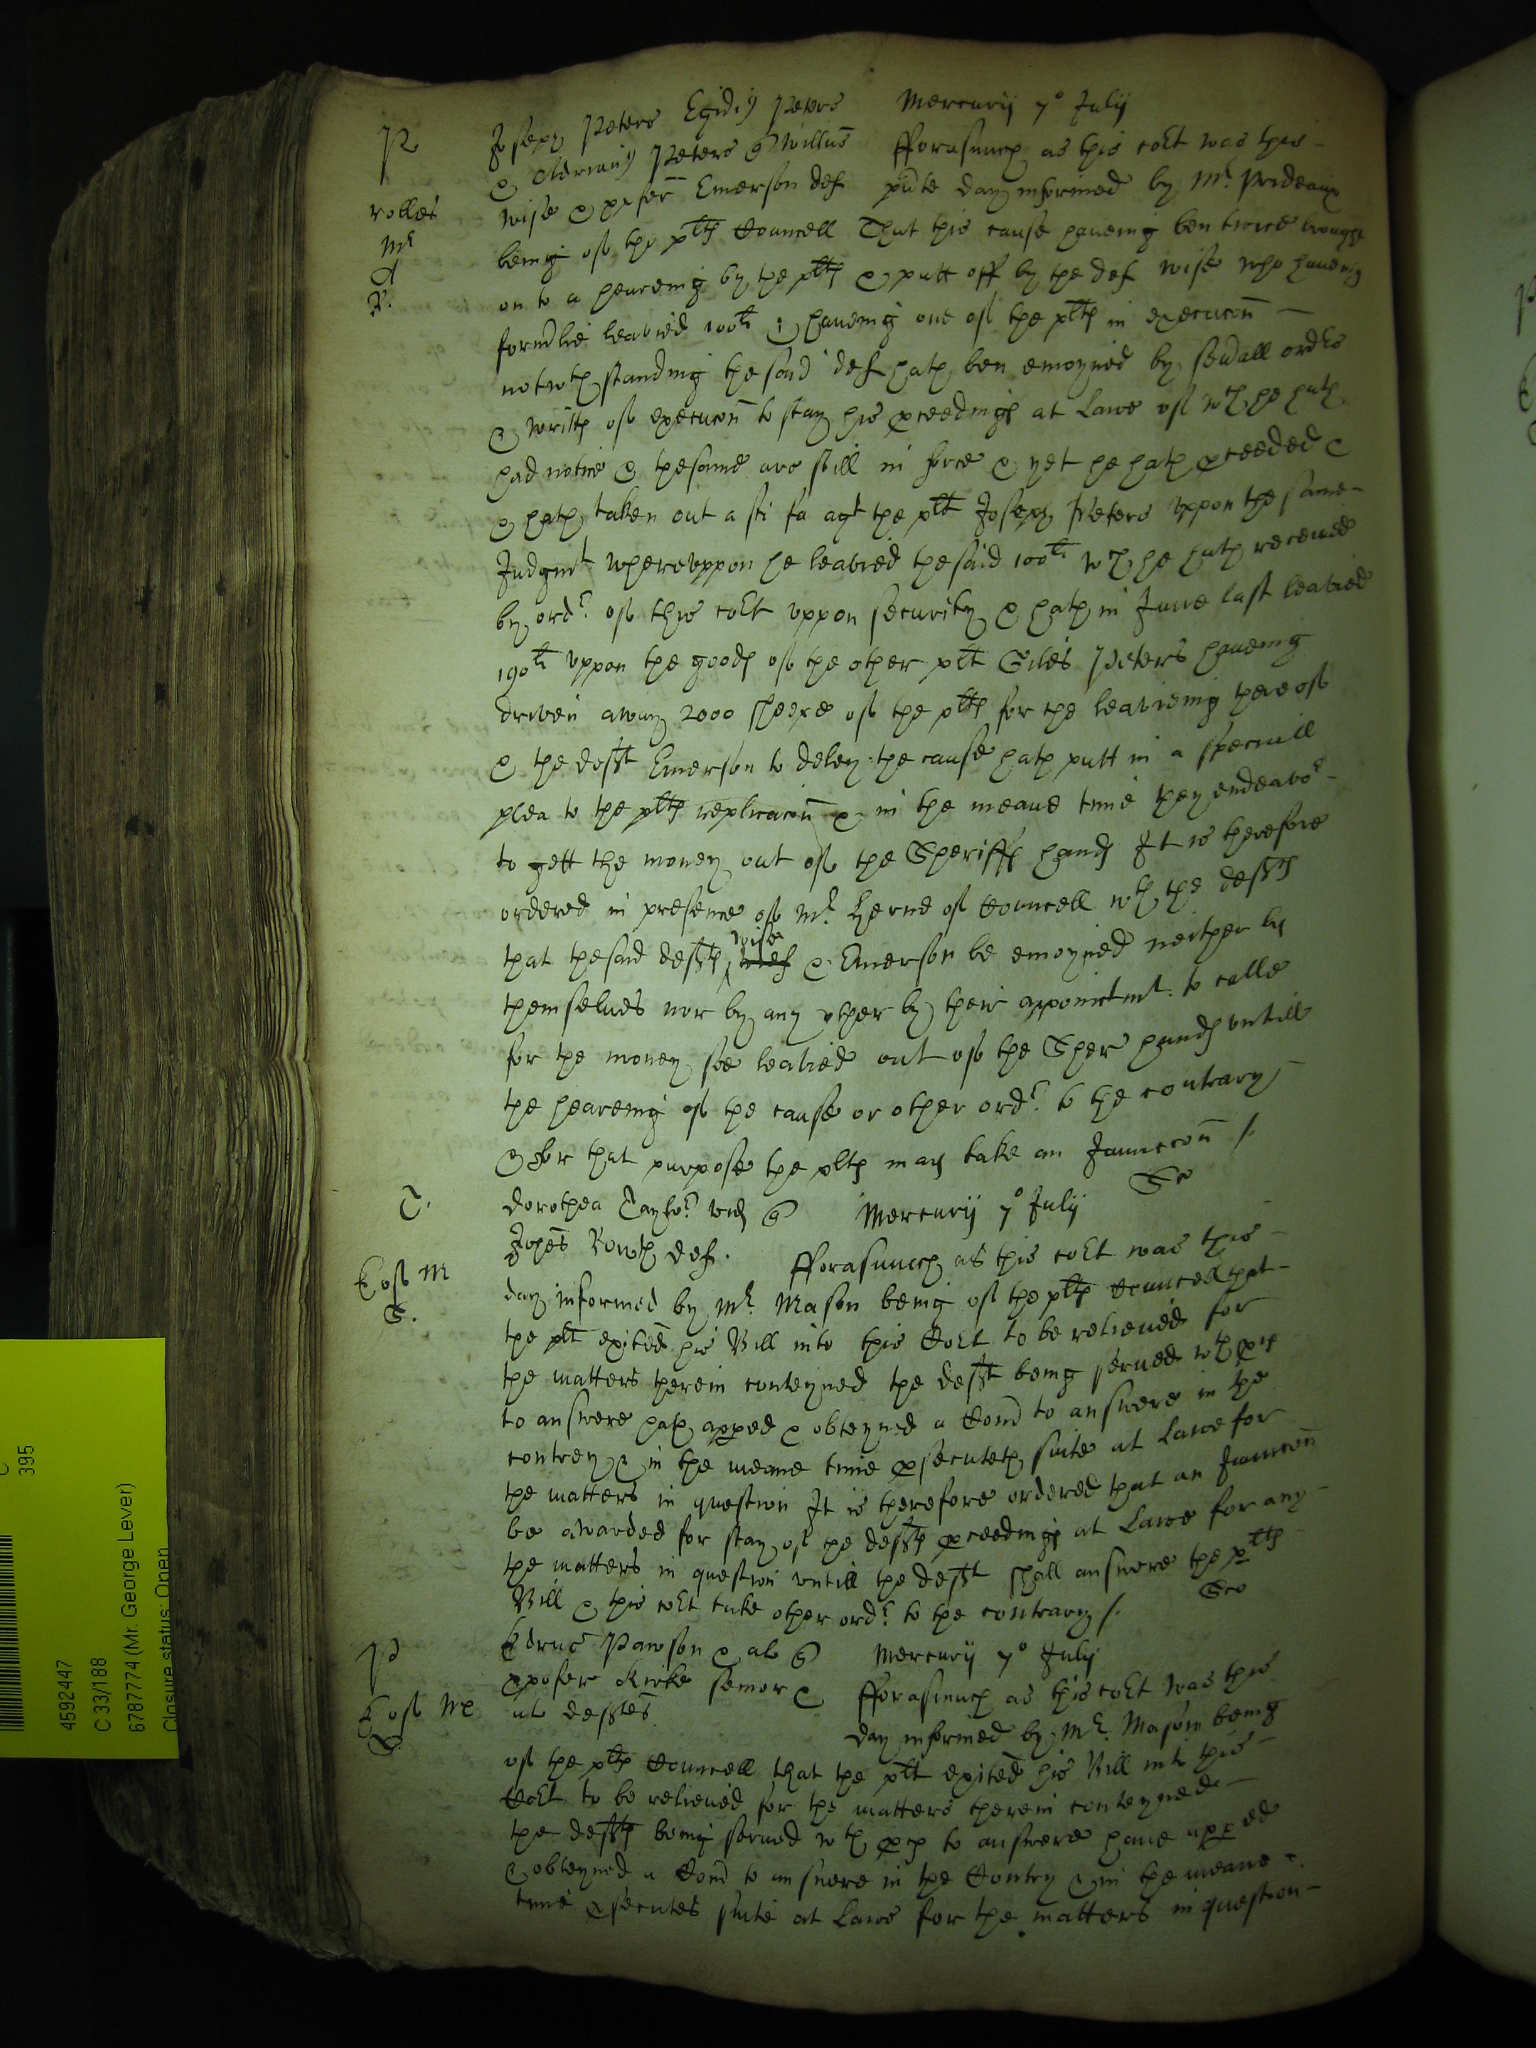 P
Joseph Peters Egidius Peters Mercurij 7° Julij
& Adrianus Peters q Willus fforasmuch as this cort was this
rolles
Wise & xpofer Emerson def pnte day informed by Mr. Prideaux
Mr
being of the plts Councell That this cause haveing ben twice brought
A
on to a heareing by the plts & putt off by the def Wise who haveing
P.
formlie leavied 100li & haveing one of the plts in execucon
notwthstanding the said def hath ben enioyned by sevall orders
& writts of execucon to stay his pceedings at Lawe of wch he hath
had notice & the same are still in force & yet he hath pceeded &
& hath taken out a sci fa agt the plt Joseph Peters uppon the same
Judgmt whereuppon he leavied the said 100li wch he hath received
by ordr of this cort uppon security & hath in June last leavied
190li uppon the goods of the other plt Giles Peters haveing
driven away 2000 sheepe of the plts for the leavieing thereof
& the deft Emerson to deley the cause hath putt in a speciall
plea to the plts replicacon & in the meane time they endeavor
to gett the money out of the Sheriffs hands It is therefore
ordered in presence of Mr. Herne of Councell wth the defts
wise
that the said defts def & Emerson be enioyned neither by
themselves nor by any other by their appointmt to calle
for the money soe leavied out of the Sher hands untill
the heareing of the cause or other ordr to the contrary
& for that purpose the plts may take an Iniunccon /.
C.
Dorothea Taylor vid q Mercurij 7° Julij
Johes Rowth def. fforasmuch as this cort was this
M
day informed by Mr. Mason being of the plts Councell that
the plt exited his Bill into this Cort to be relieved for
the matters therein conteyned the deft being served wth pces
to answere hath apped & obteyned a Comd to answere in the
contrey & in the meane time psecuteth suite at Lawe for
the matters in question It is therefore ordered that an Iniunccon
be awarded for stay of the defts pceedings at Lawe for any
the matters in question untill the deft shall answere the plts
Bill & this cort take other ordr to the contrary /.
P
Pawson & al q Mercurij 7° Julij
xpofer Kirke senior & fforasmuch as this cort was this
al deftes day informed by Mr. Mason being
of the plts Councell that the plt exited his Bill into this
Cort to be relieved for the matters therein conteyned
the defts being served wth pces to answere have apped
& obteyned a Comd to answere in the Contry & in the meane
time psecutes suite at Lawe for the matters in question
C
395
4592447
C 33/188
6787774 (Mr. George Lever)
Closure status: Open